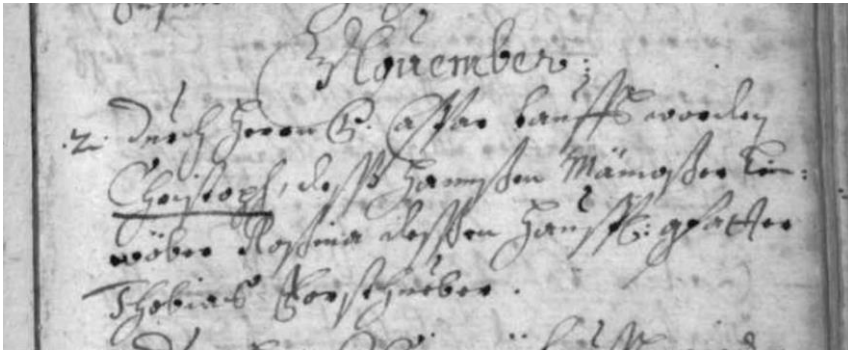 Nouember:
.2. durch Herrn C. Caspar taufft worden
Christoph, dess Hannssen Mämosser Lein-
wöber Rossina dessen Haussf: gfatter
Thobias Forsthueber.